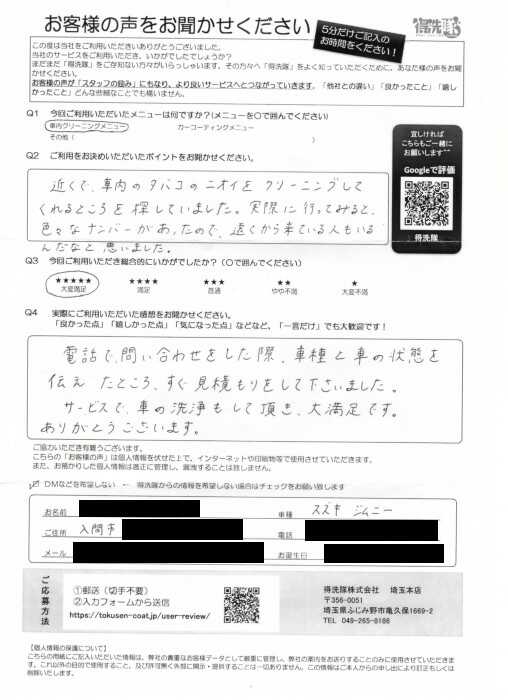 お客様の声をお聞かせください
5分だけご記入の
お時間をください！
得洗隊
この度は当社をご利用いただきありがとうございました。
当社のサービスをご利用いただき、いかがでしたでしょうか？
まだまだ「得洗隊」をご存知ない方々がいらっしゃいます。その方々へ「得洗隊」をよく知っていただくために、あなた様の声をお聞かせください。
お客様の声が「スタッフの励み」にもなり、より良いサービスへとつながっていきます。「他社との違い」「良かったこと」「嬉しかったこと」どんな些細なことでも構いません。
Q1 今回ご利用いただいたメニューは何ですか？(メニューを〇で囲んでください)
車内クリーニングメニュー カーコーティングメニュー
その他（ ）
Q2 ご利用をお決めいただいたポイントをお聞かせください。
近くで、車内のタバコのニオイをクリーニングして
くれるところを探していました。実際に行ってみると、
色々なナンバーがあったので、遠くから来ている人もいる
んだなと思いました。
宜しければ
こちらもご一緒に
お願いします^^
Googleで評価
得洗隊
Q3 今回ご利用いただき総合的にいかがでしたか？（〇で囲んでください）
★★★★★ ★★★★ ★★★ ★★ ★
大変満足 満足 普通 やや不満 大変不満
Q4 実際にご利用いただいた感想をお聞かせください。
「良かった点」「嬉しかった点」「気になった点」などなど、「一言だけ」でも大歓迎です！
電話で、問い合わせをした際、車種と車の状態を
伝えたところ、すぐ見積もりをして下さいました。
サービスで、車の洗浄もして頂き、大満足です。
ありがとうございます。
ご協力いただき有難うございます。
こちらの「お客様の声」は個人情報を伏せた上で、インターネットや印刷物等で使用させていただきます。
また、お預かりした個人情報は適正に管理し、漏洩することは致しません。
DMなどを希望しない ← 得洗隊からの情報を希望しない場合はチェックをお願い致します
お名前 車種 スズキ ジムニー
ご住所 入間市 電話
メール お誕生日
ご応募方法
①郵送（切手不要）
②入力フォームから送信
https://tokusen-coat.jp/user-review/
得洗隊株式会社 埼玉本店
〒356-0051
埼玉県ふじみ野市亀久保1669-2
TEL 049-265-8186
【個人情報の保護について】
こちらの用紙にご記入いただいた情報は、弊社の貴重なお客様データとして厳重に管理し、弊社の案内をお送りすることのみに使用させていただきます。これ以外の目的で使用すること、及び許可無く外部に開示・提供することは一切ありません。この情報はご本人からの申し出により訂正もしくは削除いたします。